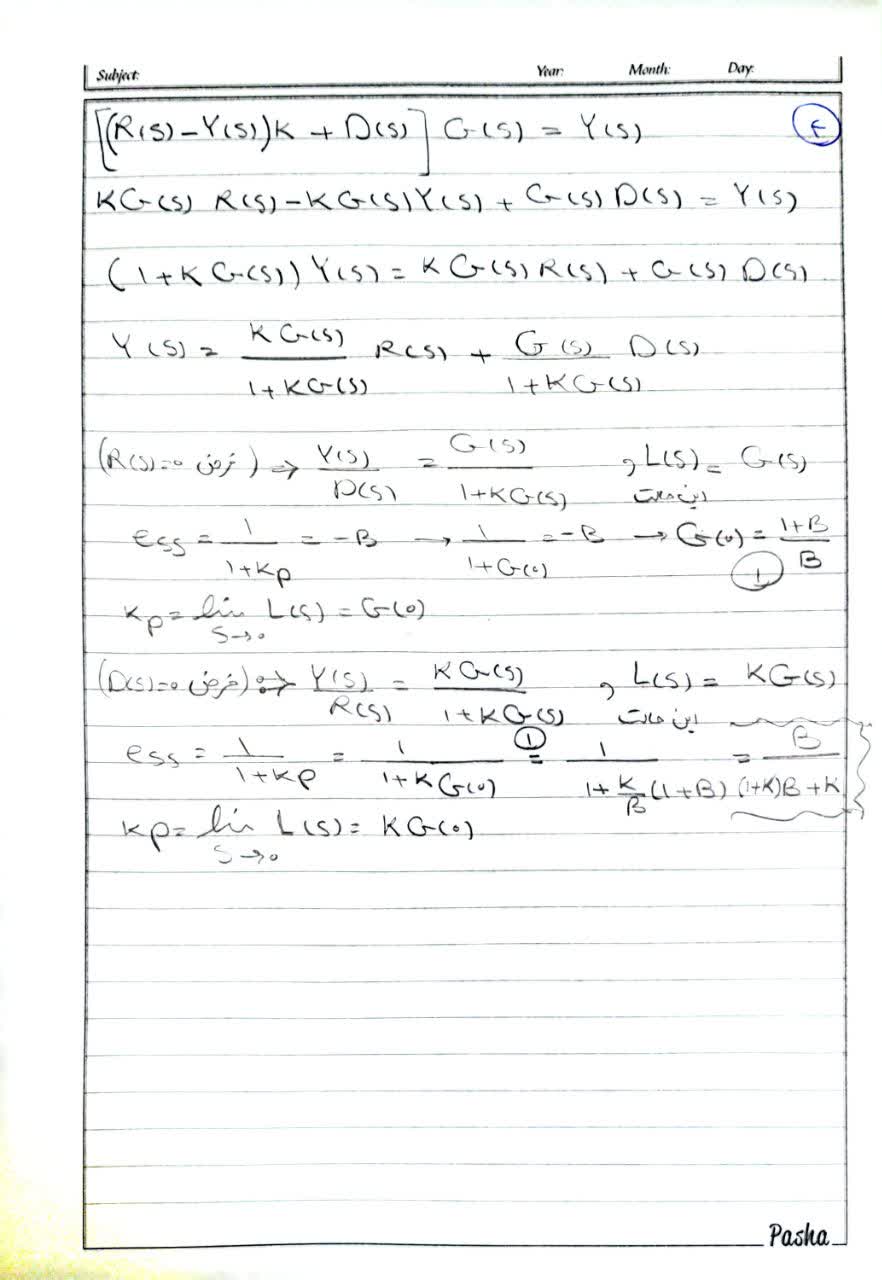 Subject: Year: Month: Day:
[(R(s) - Y(s))K + D(s)] G(s) = Y(s) ۴
KG(s) R(s) - KG(s)Y(s) + G(s) D(s) = Y(s)
(1+K G(s)) Y(s) = K G(s) R(s) + G(s) D(s)
Y(s) = KG(s)/(1+KG(s)) R(s) + G(s)/(1+KG(s)) D(s)
(R(s)=0 فرض) ⇒ Y(s)/D(s) = G(s)/(1+KG(s)) , L(s) = G(s)
این حالت
ess = 1/(1+kp) = -B → 1/(1+G(0)) = -B → G(0) = (1+B)/B ①
kp = lim s→0 L(s) = G(0)
(D(s)=0 فرض) ⇒ Y(s)/R(s) = KG(s)/(1+KG(s)) , L(s) = KG(s)
این حالت
ess = 1/(1+kp) = 1/(1+K G(0)) =① 1/(1+K/B(1+B)) = B/((1+K)B+K)
kp = lim s→0 L(s) = KG(0)
Pasha